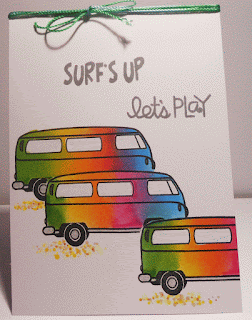 SURF'S UP
let's PLAY